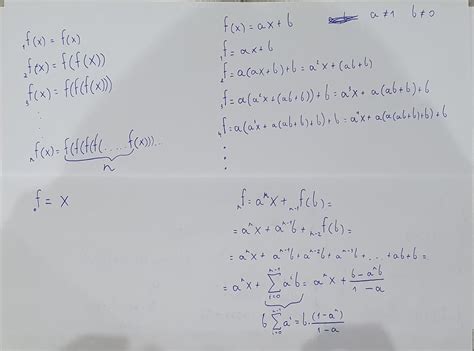 ₁f(x) = f(x)
₂f(x) = f(f(x))
₃f(x) = f(f(f(x)))
⋮
ₙf(x) = f(f(f(f(.....f(x)))...
n
₀f = x
f(x) = ax + b a≠1 b≠0
₁f = ax + b
₂f = a(ax+b)+b = a²x + (ab+b)
₃f = a(a²x + (ab+b)) + b = a³x + a(ab+b)+b
₄f = a(a³x + a(ab+b)+b)+b = a⁴x + a(a(ab+b)+b)+b
⋮
ₙf = aⁿx + ₙ₋₁f(b) =
= aⁿx + aⁿ⁻¹b + ₙ₋₂f(b) =
= aⁿx + aⁿ⁻¹b + aⁿ⁻²b + aⁿ⁻³b + ... + ab + b =
= aⁿx + ∑ᵢ₌₀ⁿ⁻¹ aⁱb = aⁿx + (b - aⁿb)/(1 - a)
b ∑ᵢ₌₀ⁿ⁻¹ aⁱ = b·(1-aⁿ)/(1-a)